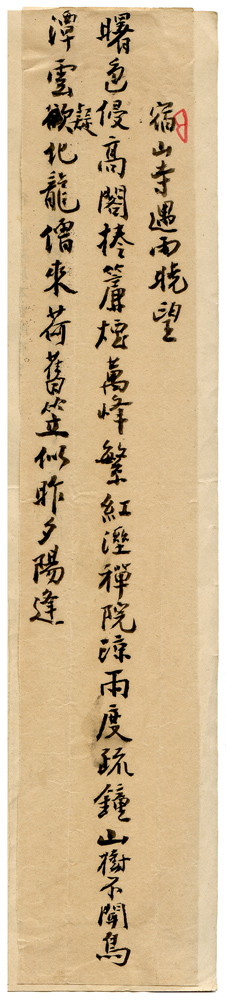 宿山寺遇雨晓望
曙色侵高閣捲簾煙萬峰繁紅溼禪院涼雨度疏鐘山樹不聞鳥
潭雲欲化龍僧來荷舊笠似昨夕陽逢